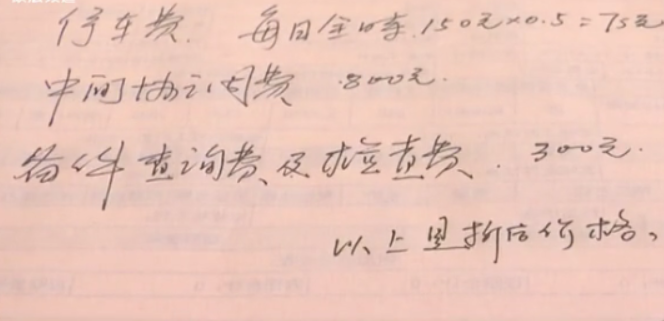 停车费. 每日全时.150元×0.5=75元
中间协调费 800元.
备件查询费及检查费. 300元.
以上是折后价格、